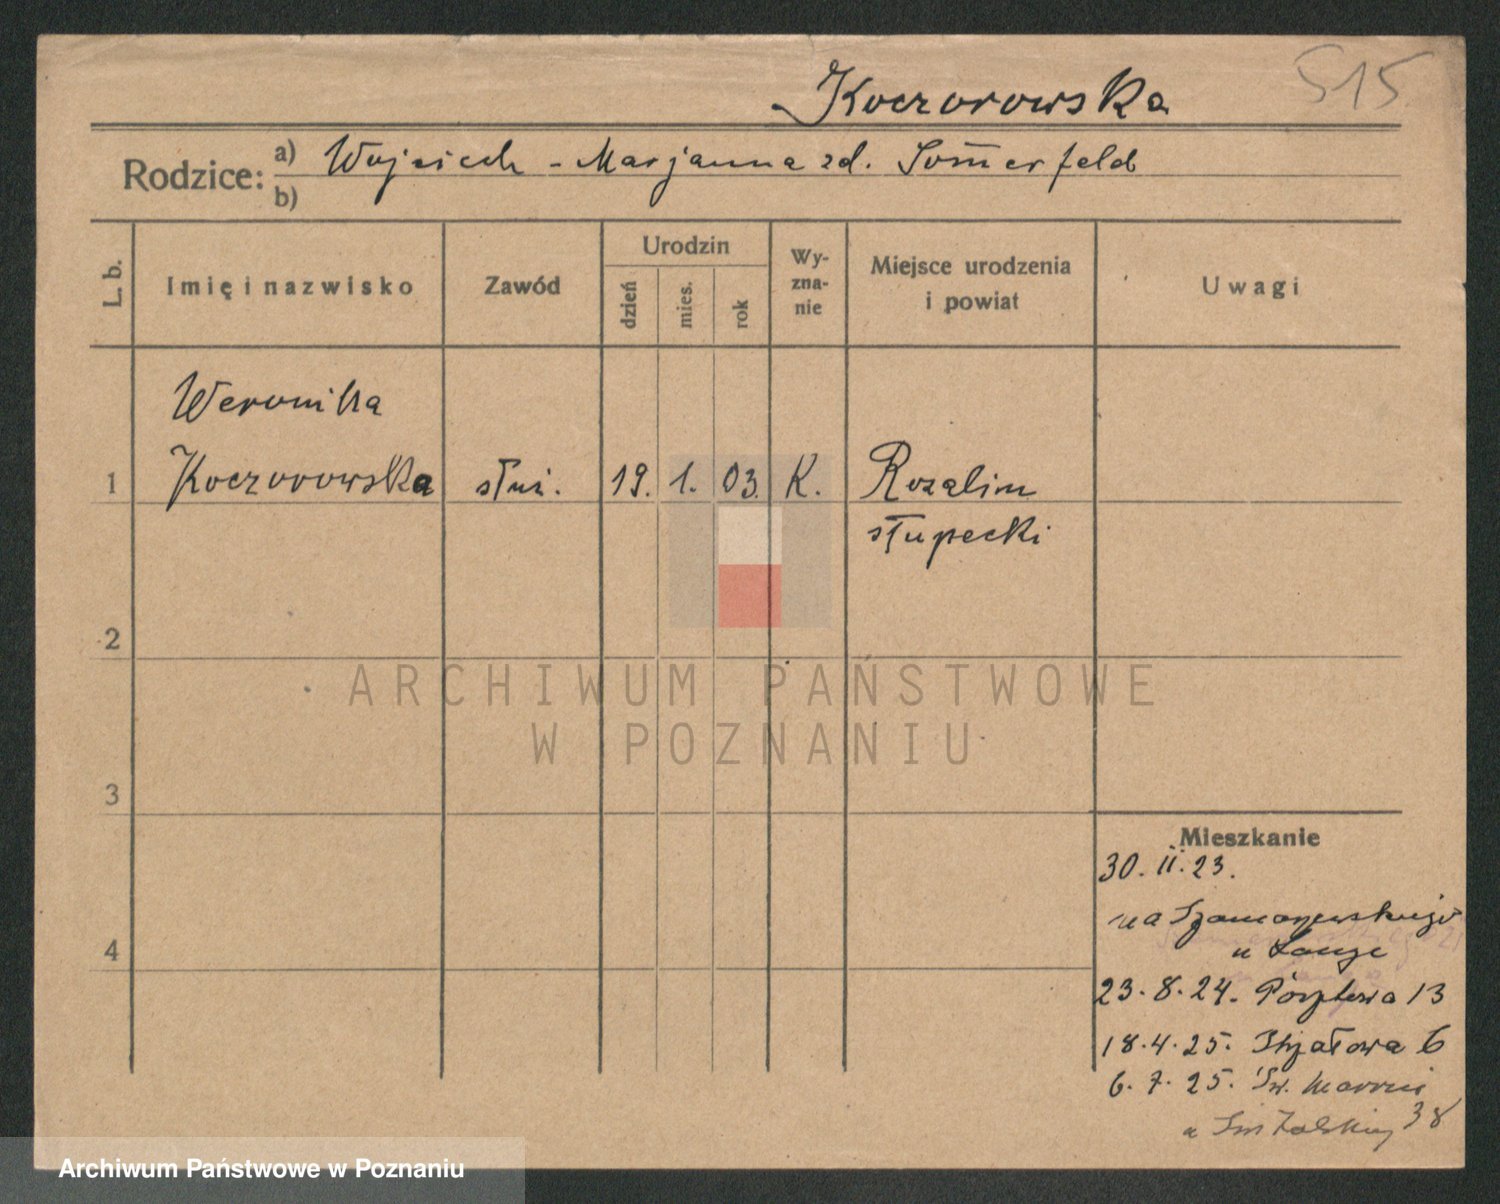 Koczorowska 515
Rodzice: a) Wojciech - Marjanna zd. Som̅erfeld
b)
L. b. Imię i nazwisko Zawód Urodzin dzień mies. rok Wy-zna-nie Miejsce urodzenia i powiat Uwagi
Weronika
1 Koczorowska służ. 19. 1. 03. K. Rozalin
słupecki
2
ARCHIWUM PAŃSTWOWE
W POZNANIU
3
Mieszkanie
30. 11. 23.
u Lange
4
23. 8. 24. 13
18. 4. 25. 6
6. 7. 25. Św. Marcin
u 38
Archiwum Państwowe w Poznaniu